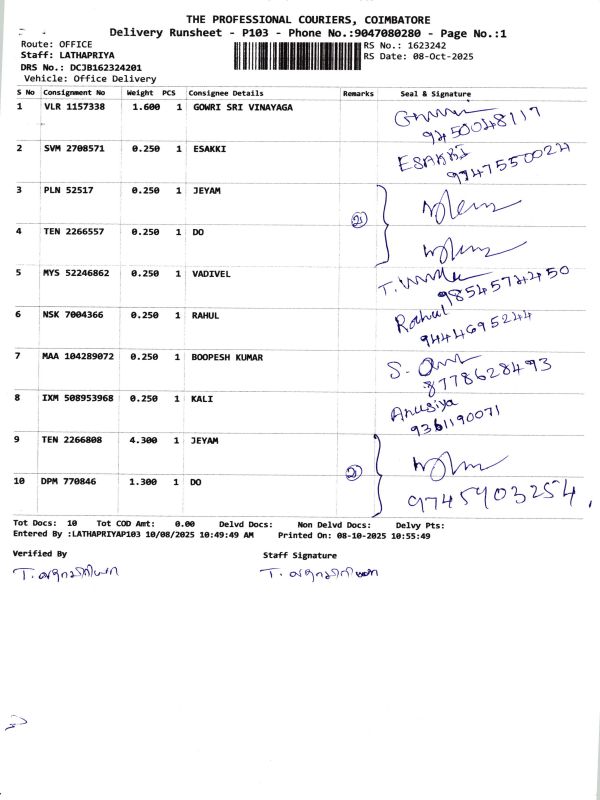 THE PROFESSIONAL COURIERS, COIMBATORE
Delivery Runsheet - P103 - Phone No.:9047080280 - Page No.:1
Route: OFFICE RS No.: 1623242
Staff: LATHAPRIYA RS Date: 08-Oct-2025
DRS No.: DCJB162324201
Vehicle: Office Delivery
S No Consignment No Weight PCS Consignee Details Remarks Seal & Signature
1 VLR 1157338 1.600 1 GOWRI SRI VINAYAGA
9450048117
2 SVM 2708571 0.250 1 ESAKKI ESAKKI
9747550024
3 PLN 52517 0.250 1 JEYAM
4 TEN 2266557 0.250 1 DO
5 MYS 52246862 0.250 1 VADIVEL
9854574450
6 NSK 7004366 0.250 1 RAHUL Rahul
9444695244
7 MAA 104289072 0.250 1 BOOPESH KUMAR
8778628493
8 IXM 508953968 0.250 1 KALI Anusiya
9361190071
9 TEN 2266808 4.300 1 JEYAM
10 DPM 770846 1.300 1 DO 9745903254
Tot Docs: 10 Tot COD Amt: 0.00 Delvd Docs: Non Delvd Docs: Delvy Pts:
Entered By :LATHAPRIYAP103 10/08/2025 10:49:49 AM Printed On: 08-10-2025 10:55:49
Verified By Staff Signature